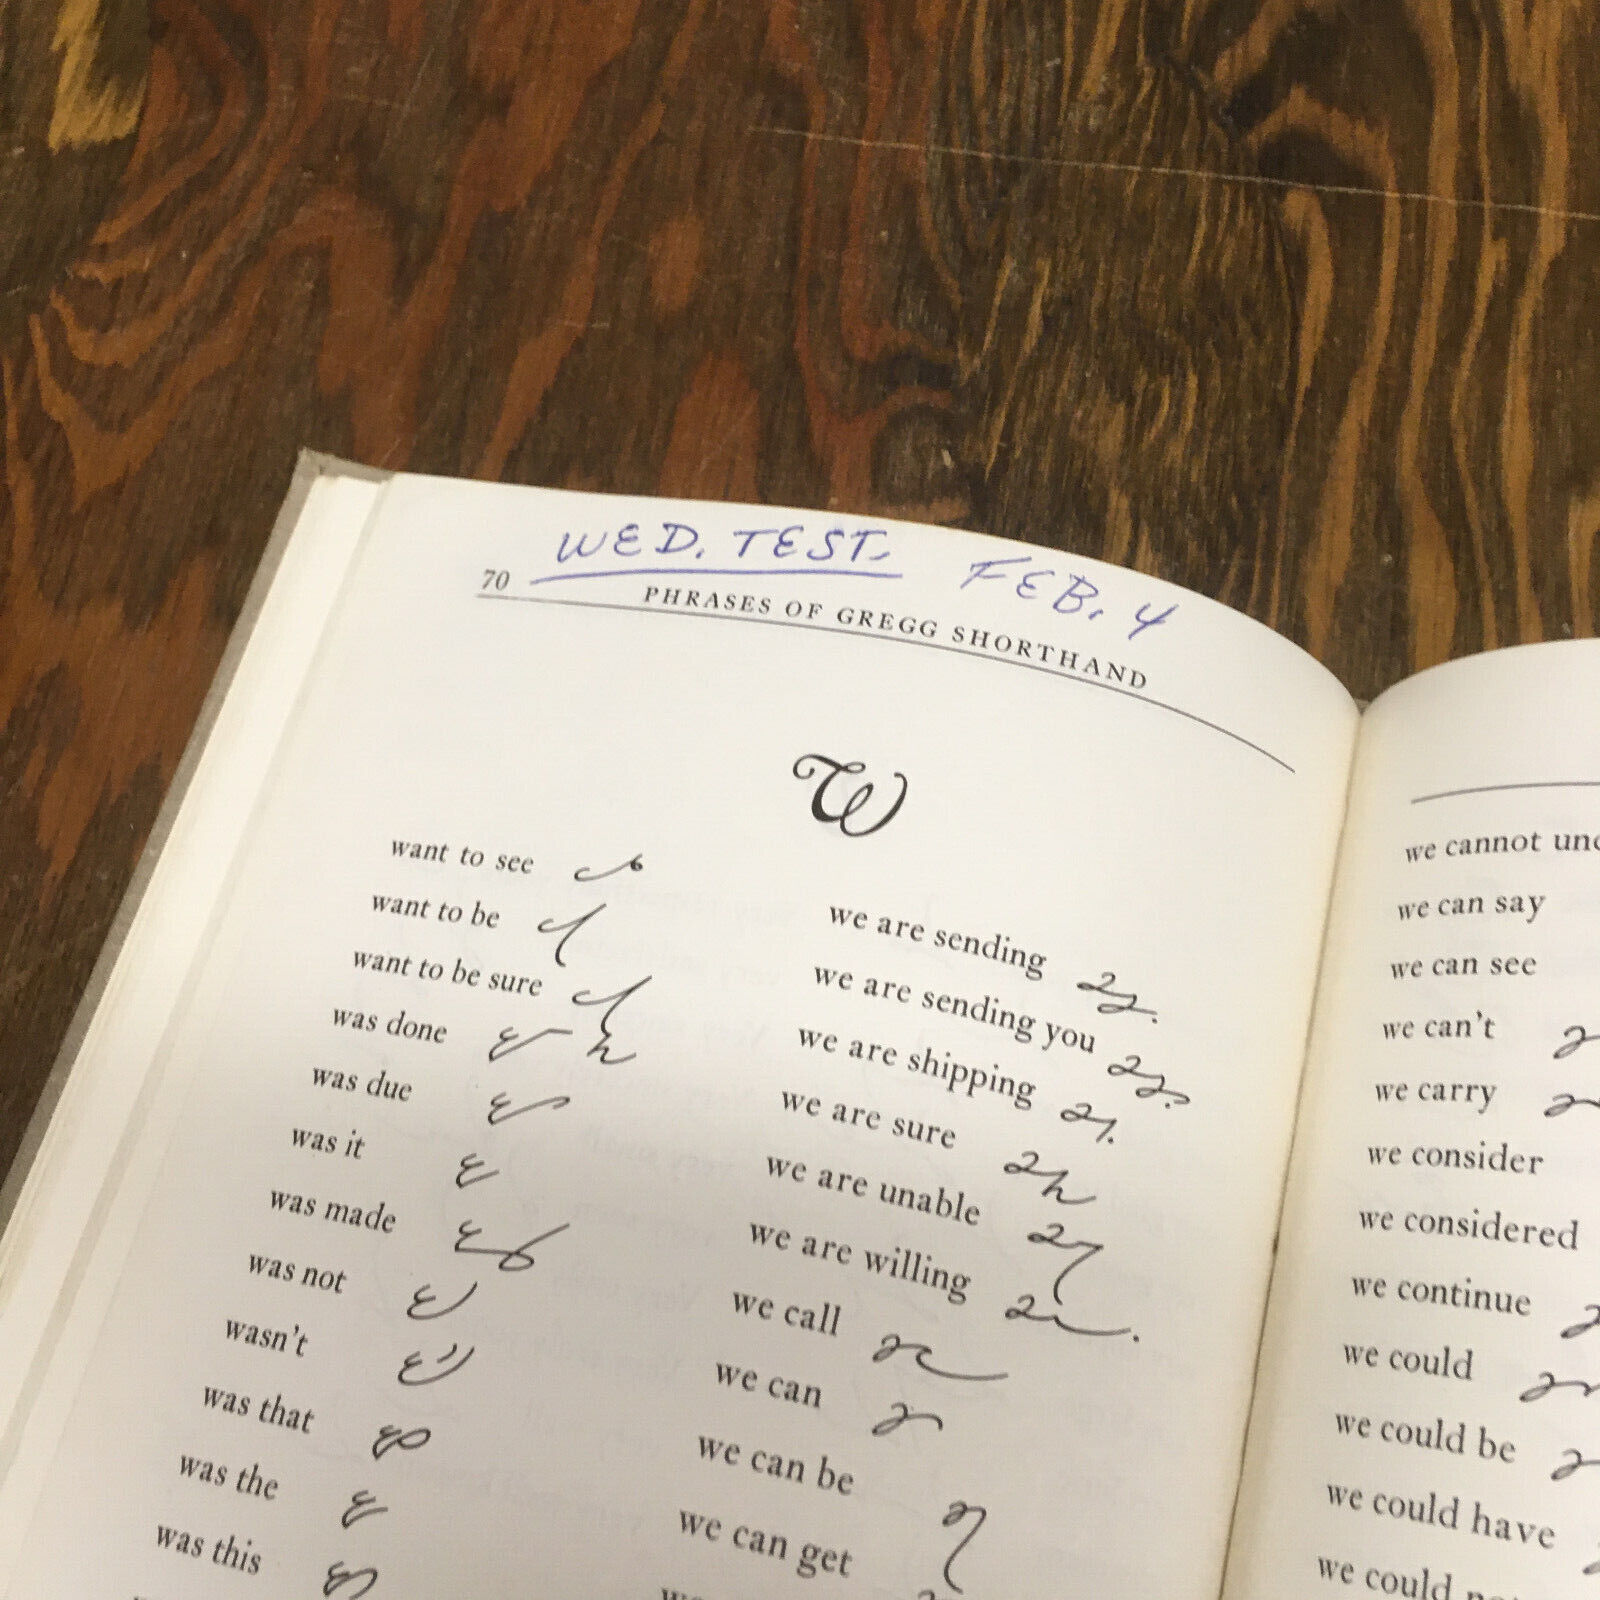 WED. TEST. FEB. 4
70 PHRASES OF GREGG SHORTHAND
W
want to see
want to be
want to be sure
was done
was due
was it
was made
was not
wasn't
was that
was the
was this
we are sending
we are sending you
we are shipping
we are sure
we are unable
we are willing
we call
we can
we can be
we can get
we cannot
we can say
we can see
we can't
we carry
we consider
we considered
we continue
we could
we could be
we could have
we could